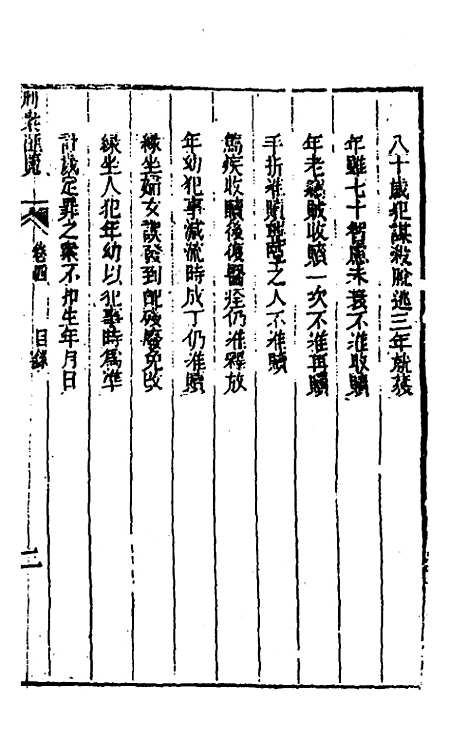 八十歲犯謀殺脫逃三年就獲
年雖七十智慮未衰不准收贖
年老竊賊收贖一次不准再贖
手折准贖雖聾之人不准贖
篤疾收贖後復醫痊仍准釋放
年幼犯事減流時成丁仍准贖
緣坐婦女誤發到配殘廢免收
緣坐人犯年幼以犯事時為準
計歲定罪之案不扣生年月日
刑案匯覽 卷四 目錄 二